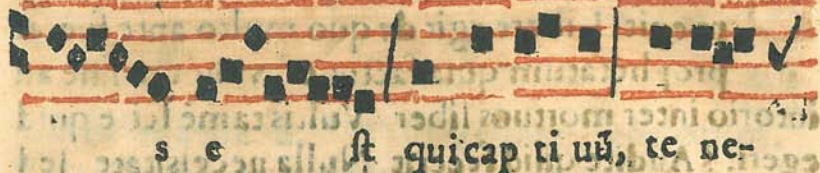 s e st qui cap ti uū, te ne-